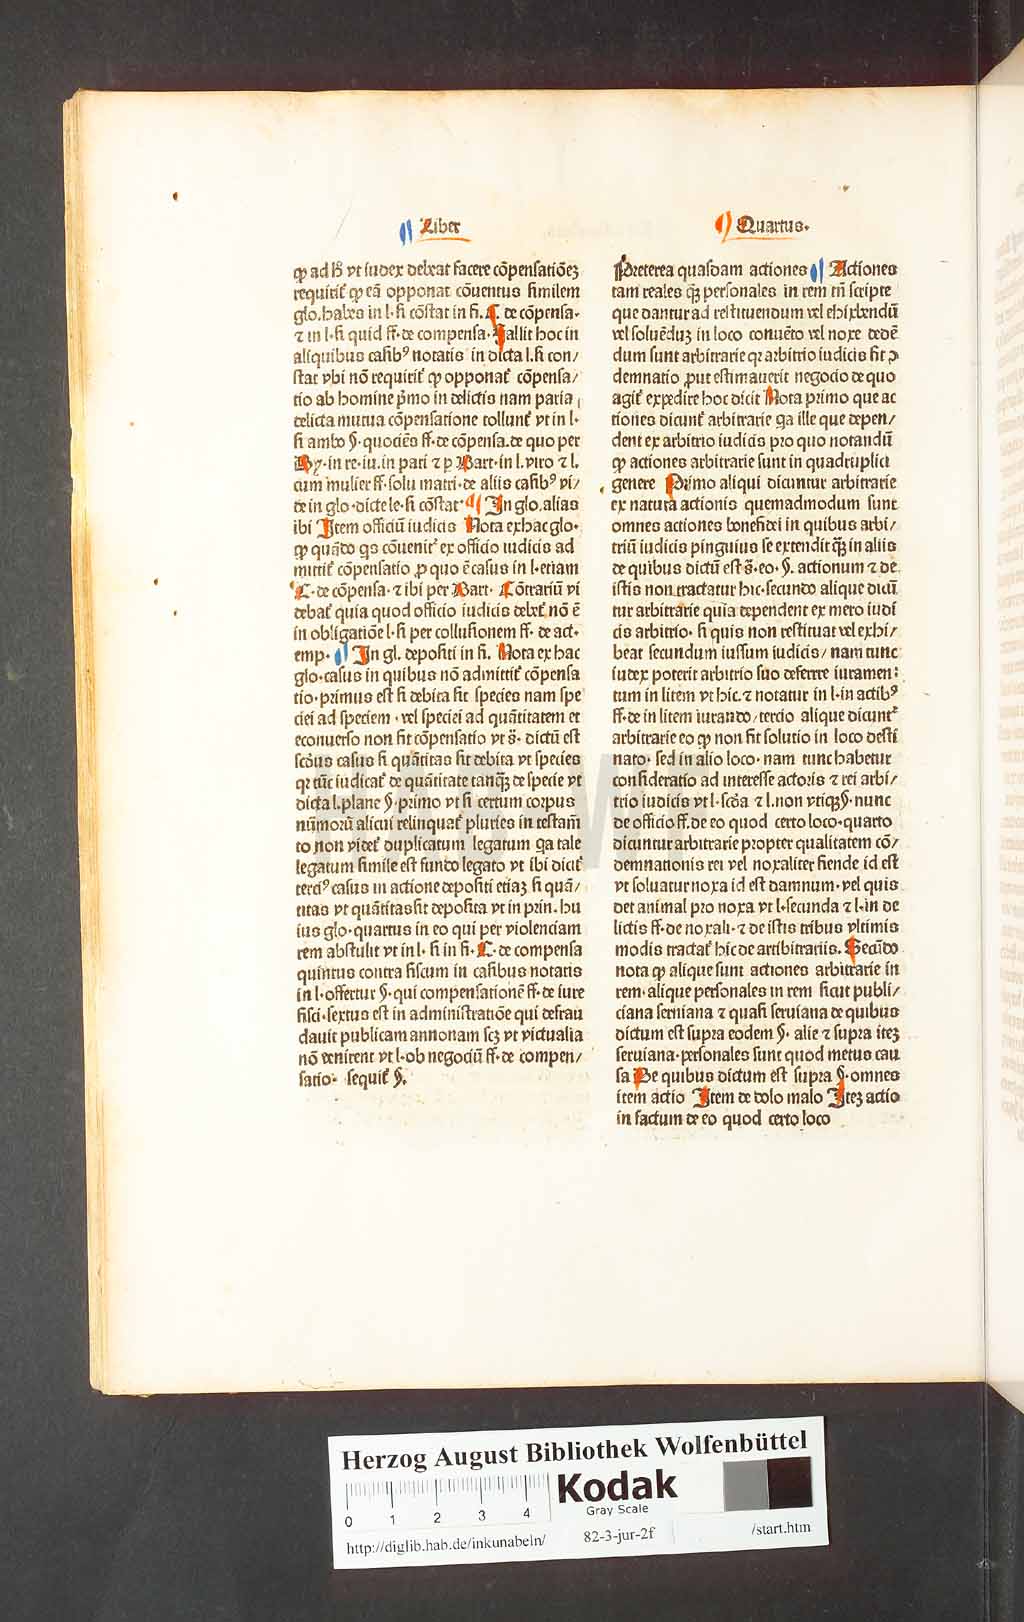 Liber
Quartus.
ꝙ ad hͦ vt iudex debeat facere cōpensatiōeȝ
requiriť ꝙ eā opponat cōuentus similem
glo. habes in l. si cōstat in fi. C. de cōpensa.
⁊ in l. si quid ff. de compensa. Fallit hoc in
aliquibus casibꝰ notatis in dicta l. si con/
stat vbi nō requiriť ꝙ opponať cōpensa/
tio ab homine p̄mo in delictis nam paria
delicta mutua cōpensatione tollunť vt in l.
si ambo §. quociēs ff. de cōpensa. de quo per
Dy. in re. iu. in pari ⁊ p Bart. in l. viro ⁊ l.
cum mulier ff. solu matri. de aliis casibꝰ vi/
de in glo. dicte le. si cōstat In glo. alias
ibi Item officiū iudicis Nota ex hac glo.
ꝙ quādo qͥs cōueniť ex officio iudicis ad
mittiť cōpensatio ꝓ quo ē casus in l. etiam
C. de cōpensa. ⁊ ibi per Bart. Cōtrariū vi
debať quia quod officio iudicis debeť nō ē
in obligatiōe l. si per collusionem ff. de act.
emp. In gl. depositi in fi. Nota ex hac
glo. casus in quibus nō admittiť cōpensa
tio. primus est si debita sit species nam spe
ciei ad speciem . vel speciei ad quātitatem et
econuerso non fit cōpensatio vt s̄. dictū est
scd̄us casus si quātitas sit debita vt species
qꝛ tūc iudicať de quātitate tanqȝ de specie vt
dicta l. plane §. primo vt si certum corpus
nūmorū alicui relinquať pluries in testam̄
to non videť duplicatum legatum qͣ tale
legatum simile est fundo legato vt ibi diciť
terciꝰ casus in actione depositi etiaȝ si quā/
titas vt quātitas sit deposita vt in prin. hu
ius glo. quartus in eo qui per violenciam
rem abstulit vt in l. si in fi. C. de compensa
quintus contra fiscum in casibus notatis
in l. offertur §. qui compensationē ff. de iure
fisci. sextus est in administratiōe qui defrau
dauit publicam annonam scȝ vt victualia
nō venirent vt l. ob negociū ff. de compen/
satio. sequiť §.
Preterea quasdam actiones Actiones
tam reales qȝ personales in rem tn̄ scripte
que dantur ad restituendum vel exhibendū
vel soluēduȝ in loco conuēto vel noxe dedē
dum sunt arbitrarie qꝛ arbitrio iudicis fit ꝯ
demnatio ꝓut estimauerit negocio de quo
agiť expedire hoc dicit Nota primo que ac
tiones dicunť arbitrarie qͣ ille que depen/
dent ex arbitrio iudicis pro quo notandū
ꝙ actiones arbitrarie sunt in quadruplici
genere Primo aliqui dicuntur arbitrarie
ex natura actionis quemadmodum sunt
omnes actiones bonefidei in quibus arbi/
triū iudicis pinguius se extendit qȝ in aliis
de quibus dictū est s̄. eo. §. actionum ⁊ de
istis non tractatur hic. secundo alique dicū
tur arbitrarie quia dependent ex mero iudi
cis arbitrio. si quis non restituat vel exhi/
beat secundum iussum iudicis/ nam tunc
iudex poterit arbitrio suo deferre iuramen:
tum in litem vt hic. ⁊ notatur in l. in actibꝰ
ff. de in litem iurando/ tercio alique dicunť
arbitrarie eo ꝙ non fit solutio in loco desti
nato. sed in alio loco. nam tunc habetur
consideratio ad interesse actoris ⁊ rei arbi/
trio iudicis vt l. scd̄a ⁊ l. non vtiqȝ §. nunc
de officio ff. de eo quod certo loco. quarto
dicuntur arbitrarie propter qualitatem cō/
demnationis rei vel noxaliter fiende id est
vt soluatur noxa id est damnum. vel quis
det animal pro noxa vt l. secunda ⁊ l. in de
lictis ff. de noxali. ⁊ de istis tribus vltimis
modis tractať hic de artibitrariis. Secūdo
nota ꝙ alique sunt actiones arbitrarie in
rem. alique personales in rem sicut publi/
ciana serniana ⁊ quasi seruiana de quibus
dictum est supra eodem §. alie ⁊ supra iteȝ
seruiana. personales sunt quod metus cau
sa De quibus dictum est supra §. omnes
item actio Item de dolo malo Iteȝ actio
in factum de eo quod certo loco
Herzog August Bibliothek Wolfenbüttel
Kodak
Gray Scale
0 1 2 3 4
http://diglib.hab.de/inkunabeln/ 82-3-jur-2f /start.htm